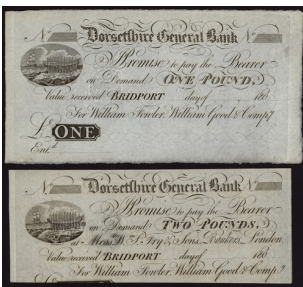 No No
Dorsetshire General Bank
I Promise to pay the Bearer
on Demand ONE POUND.
Value received BRIDPORT day of 180
For William Fowler, William Good & Compy.
£ ONE
Entd.
No No
Dorsetshire General Bank
I Promise to pay the Bearer
on Demand TWO POUNDS,
at Messrs. W. S. Fry & Sons, Bankers, London
Value received BRIDPORT day of 180
For William Fowler, William Good & Compy.